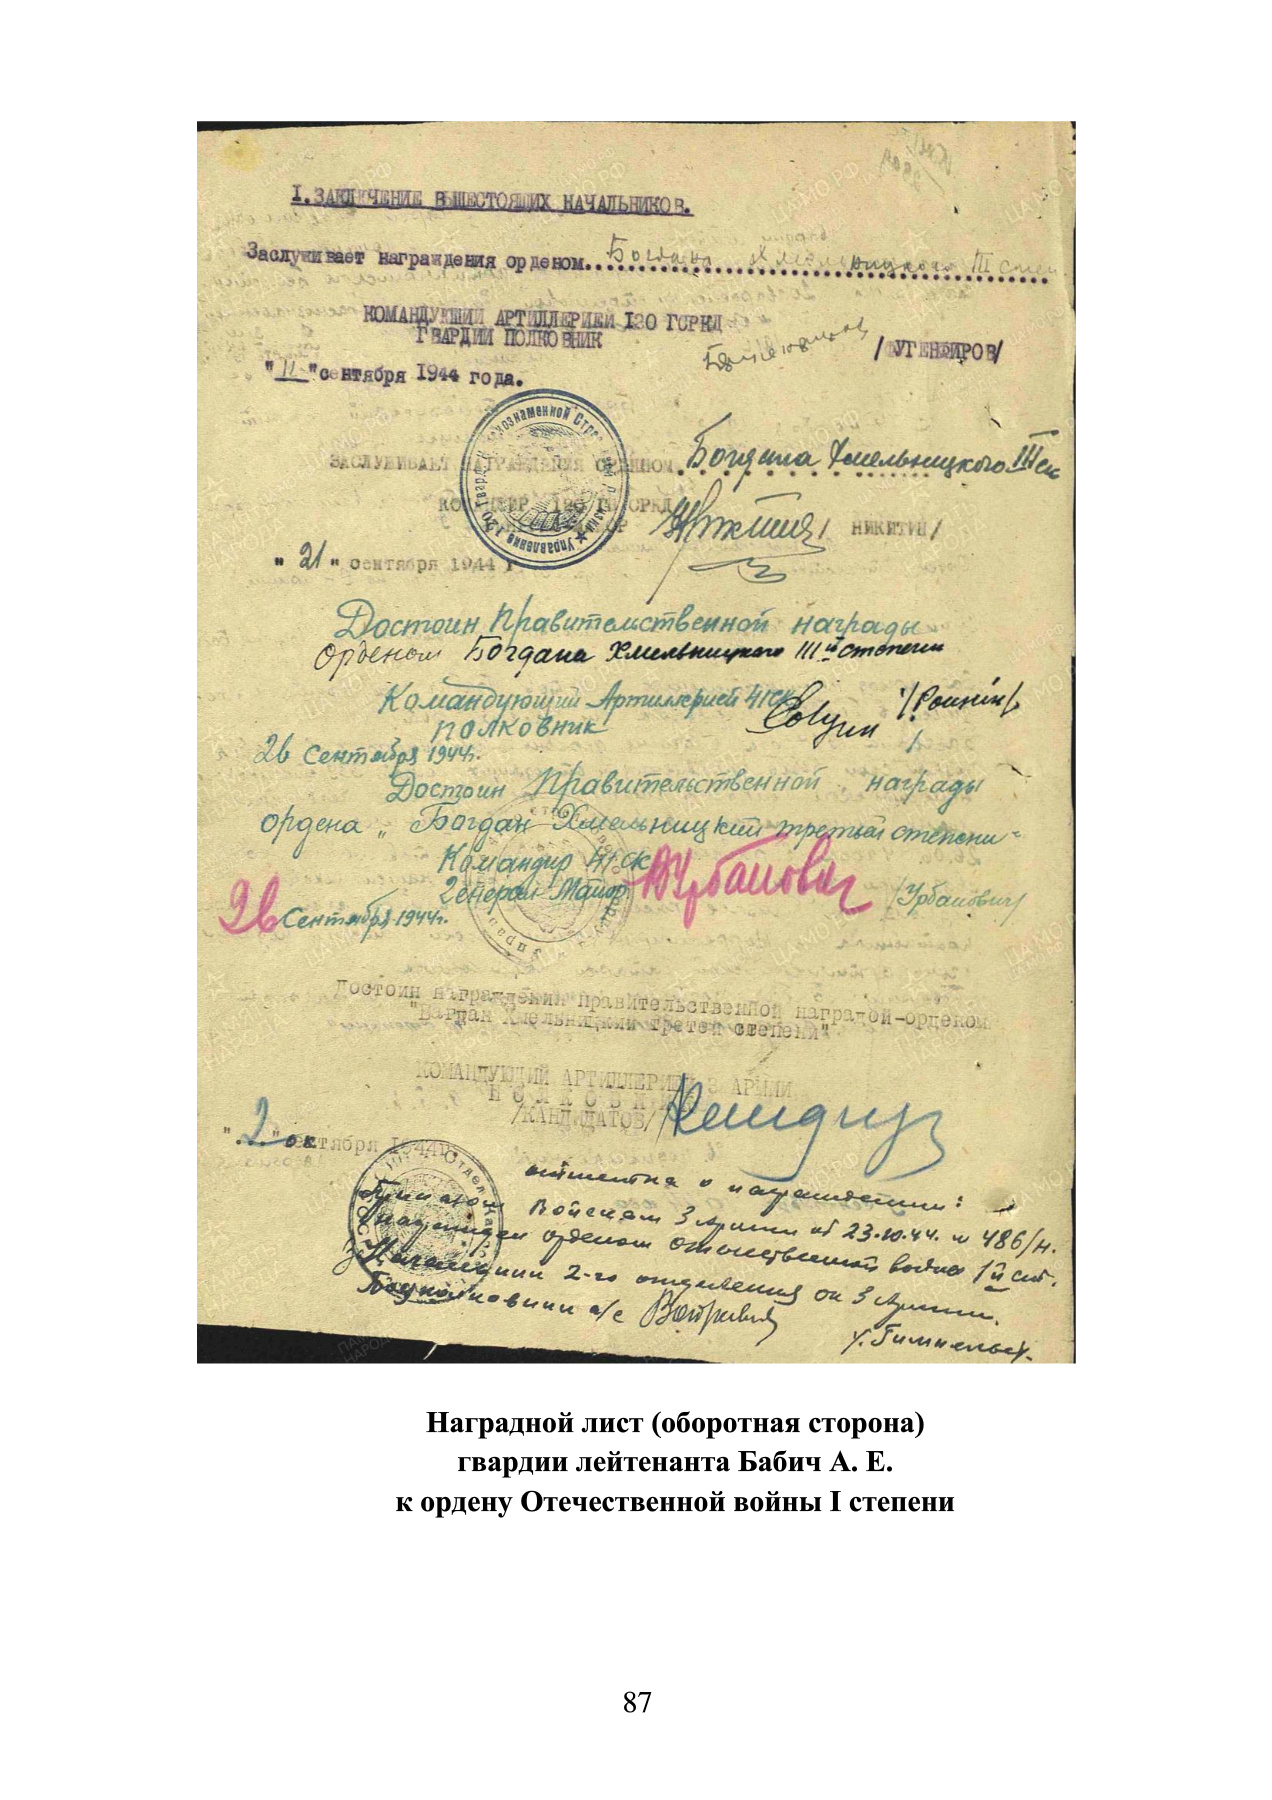 I. ЗАКЛЮЧЕНИЕ ВЫШЕСТОЯЩИХ НАЧАЛЬНИКОВ.
Заслуживает награждения орденом Богдана Хмельницкого III степ
КОМАНДУЮЩИЙ АРТИЛЛЕРИЕЙ 120 ГСРКД
ГВАРДИИ ПОЛКОВНИК
"11" сентября 1944 года.
ЗАСЛУЖИВАЕТ НАГРАЖДЕНИЯ ОРДЕНОМ Богдана Хмельницкого III ст
КОМАНДИР 120 ГСРКД
/ НИКИТИН/
"21" сентября 1944 г
Достоин Правительственной награды
Орденом Богдана Хмельницкого III й степени
Командующий Артиллерией 41 ск
полковник
26 Сентября 1944г.
Достоин Правительственной награды
ордена „Богдан Хмельницкий третьей степени“
Командир 41 ск
Генерал Майор Урбанович /Урбанович/
26 Сентября 1944г.
Достоин награждения правительственной наградой-орденом
"Багдан Хмельницкий третей степени"
КОМАНДУЮЩИЙ АРТИЛЛЕРИЕЙ 3 АРМИИ
ПОЛКОВНИК
/КАНДИДАТОВ/
"2" октября 1944г.
отметка о награждении:
Приказом Войскам 3 Армии от 23.10.44. н 486/н.
награжден орденом отечественной войны 1й ст.
Начальник 2-го отделения ок 3 Армии.
Подполковник а/с
Наградной лист (оборотная сторона)
гвардии лейтенанта Бабич А. Е.
к ордену Отечественной войны I степени
87